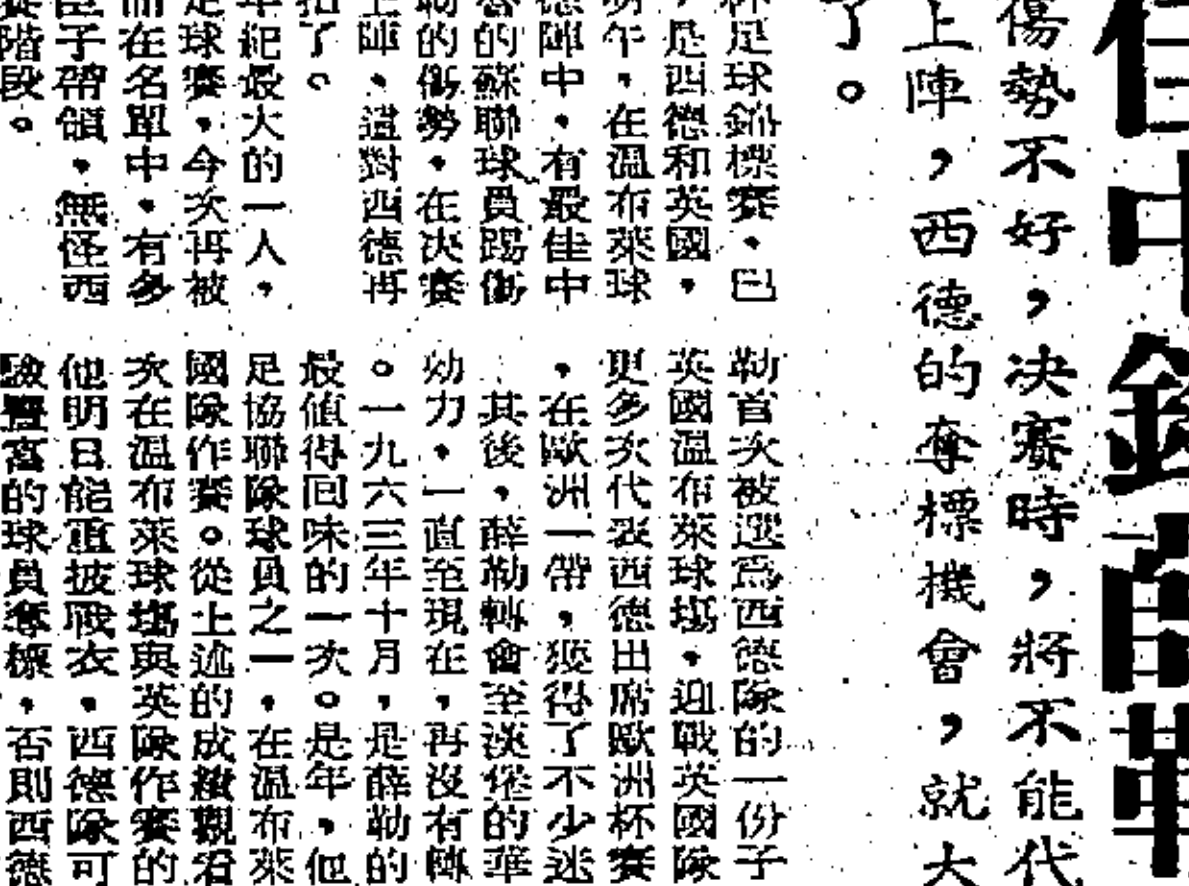 任中鋒
傷勢不好，決賽時，將不能代
上陣，西德的奪標機會，就大
了。
杯足球錦標賽，已
，是西德和英國，
午，在溫布萊球
德陣中，有最佳中
的蘇聯球員踢傷
勒的傷勢，在決賽
上陣，這對西德再
招了。
年紀最大的一人，
足球賽，今次再被
而在名單中，有多
臣子帶領，無怪西
階段。
勒首次被選爲西德隊的一份子
英國溫布萊球塲，迎戰英國隊
更多次代表西德出席歐洲杯賽
，在歐洲一帶，獲得了不少迷
其後，薛勒轉會至漢堡的華
幼力，一直至現在，再沒有轉
。一九六三年十月，是薛勒的
最值得回味的一次。是年，他
足協聯隊球員之一，在溫布萊
國隊作賽。從上述的成績觀看
次在溫布萊球塲與英隊作賽的
他明日能重披戰衣，西德隊可
驗豐富的球員奪標，否則西德